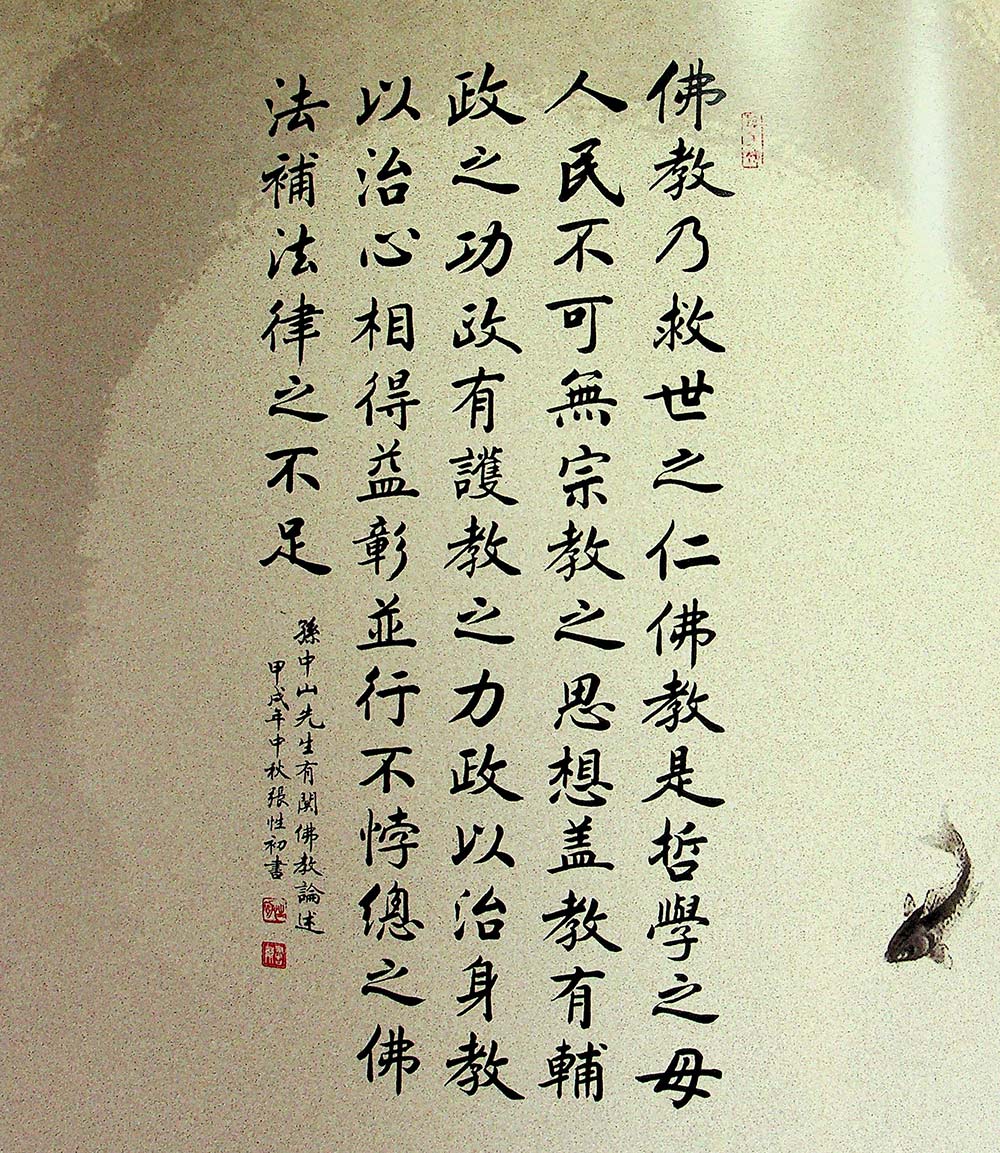 佛教乃救世之仁佛教是哲學之母
人民不可無宗教之思想盖教有輔
政之功政有護教之力政以治身教
以治心相得益彰並行不悖總之佛
法補法律之不足
孫中山先生有関佛教論述
甲戌年中秋張性初書